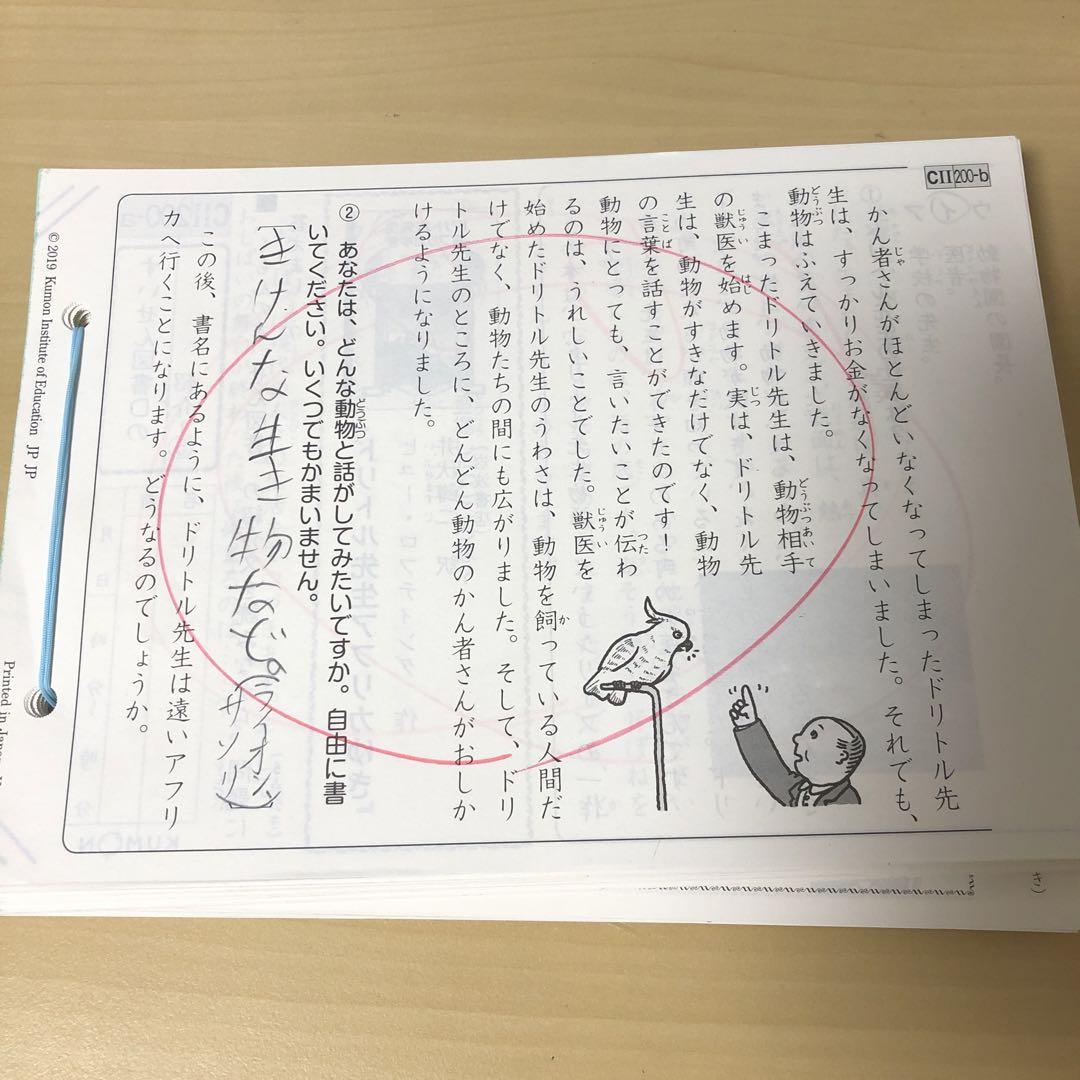 CII 200-b
かん者さんがほとんどいなくなってしまったドリトル先
生は、すっかりお金がなくなってしまいました。それでも、
動物はふえていきました。
こまったドリトル先生は、動物相手
の獣医を始めます。実は、ドリトル先
生は、動物がすきなだけでなく、動物
の言葉を話すことができたのです！
動物にとっても、言いたいことが伝わ
るのは、うれしいことでした。獣医を
始めたドリトル先生のうわさは、動物を飼っている人間だ
けでなく、動物たちの間にも広がりました。そして、ドリ
トル先生のところに、どんどん動物のかん者さんがおしか
けるようになりました。
② あなたは、どんな動物と話がしてみたいですか。自由に書
いてください。いくつでもかまいません。
［きけんな生き物など。（ライオン、
サソリ）］
この後、書名にあるように、ドリトル先生は遠いアフリ
カへ行くことになります。どうなるのでしょうか。
© 2019 Kumon Institute of Education JP JP
Printed in